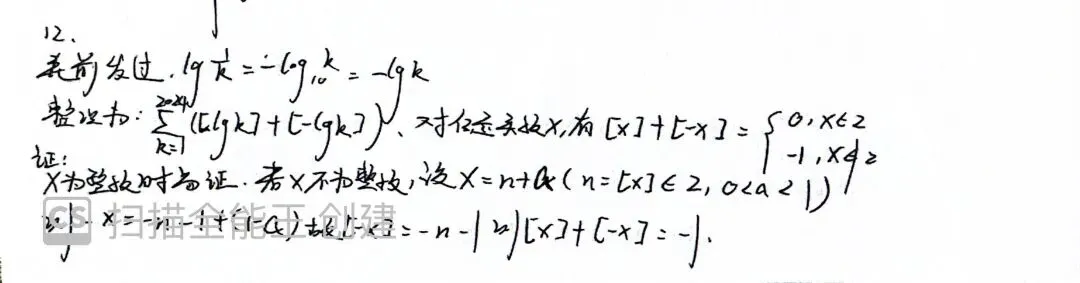 12.
lg 1/k = -log₁₀k = -lgk
整理为: ∑_{k=1}^{2024} ([lgk]+[-lgk])、对任意实数x,有 [x]+[-x] = { 0, x∈Z
-1, x∉Z
证:
x为整数时易证. 若x不为整数,设 x=n+a (n=[x]∈Z, 0<a<1)
则 -x = -n-1+(1-a) 故[-x] = -n-1 则[x]+[-x] = -1.
CS 扫描全能王 创建